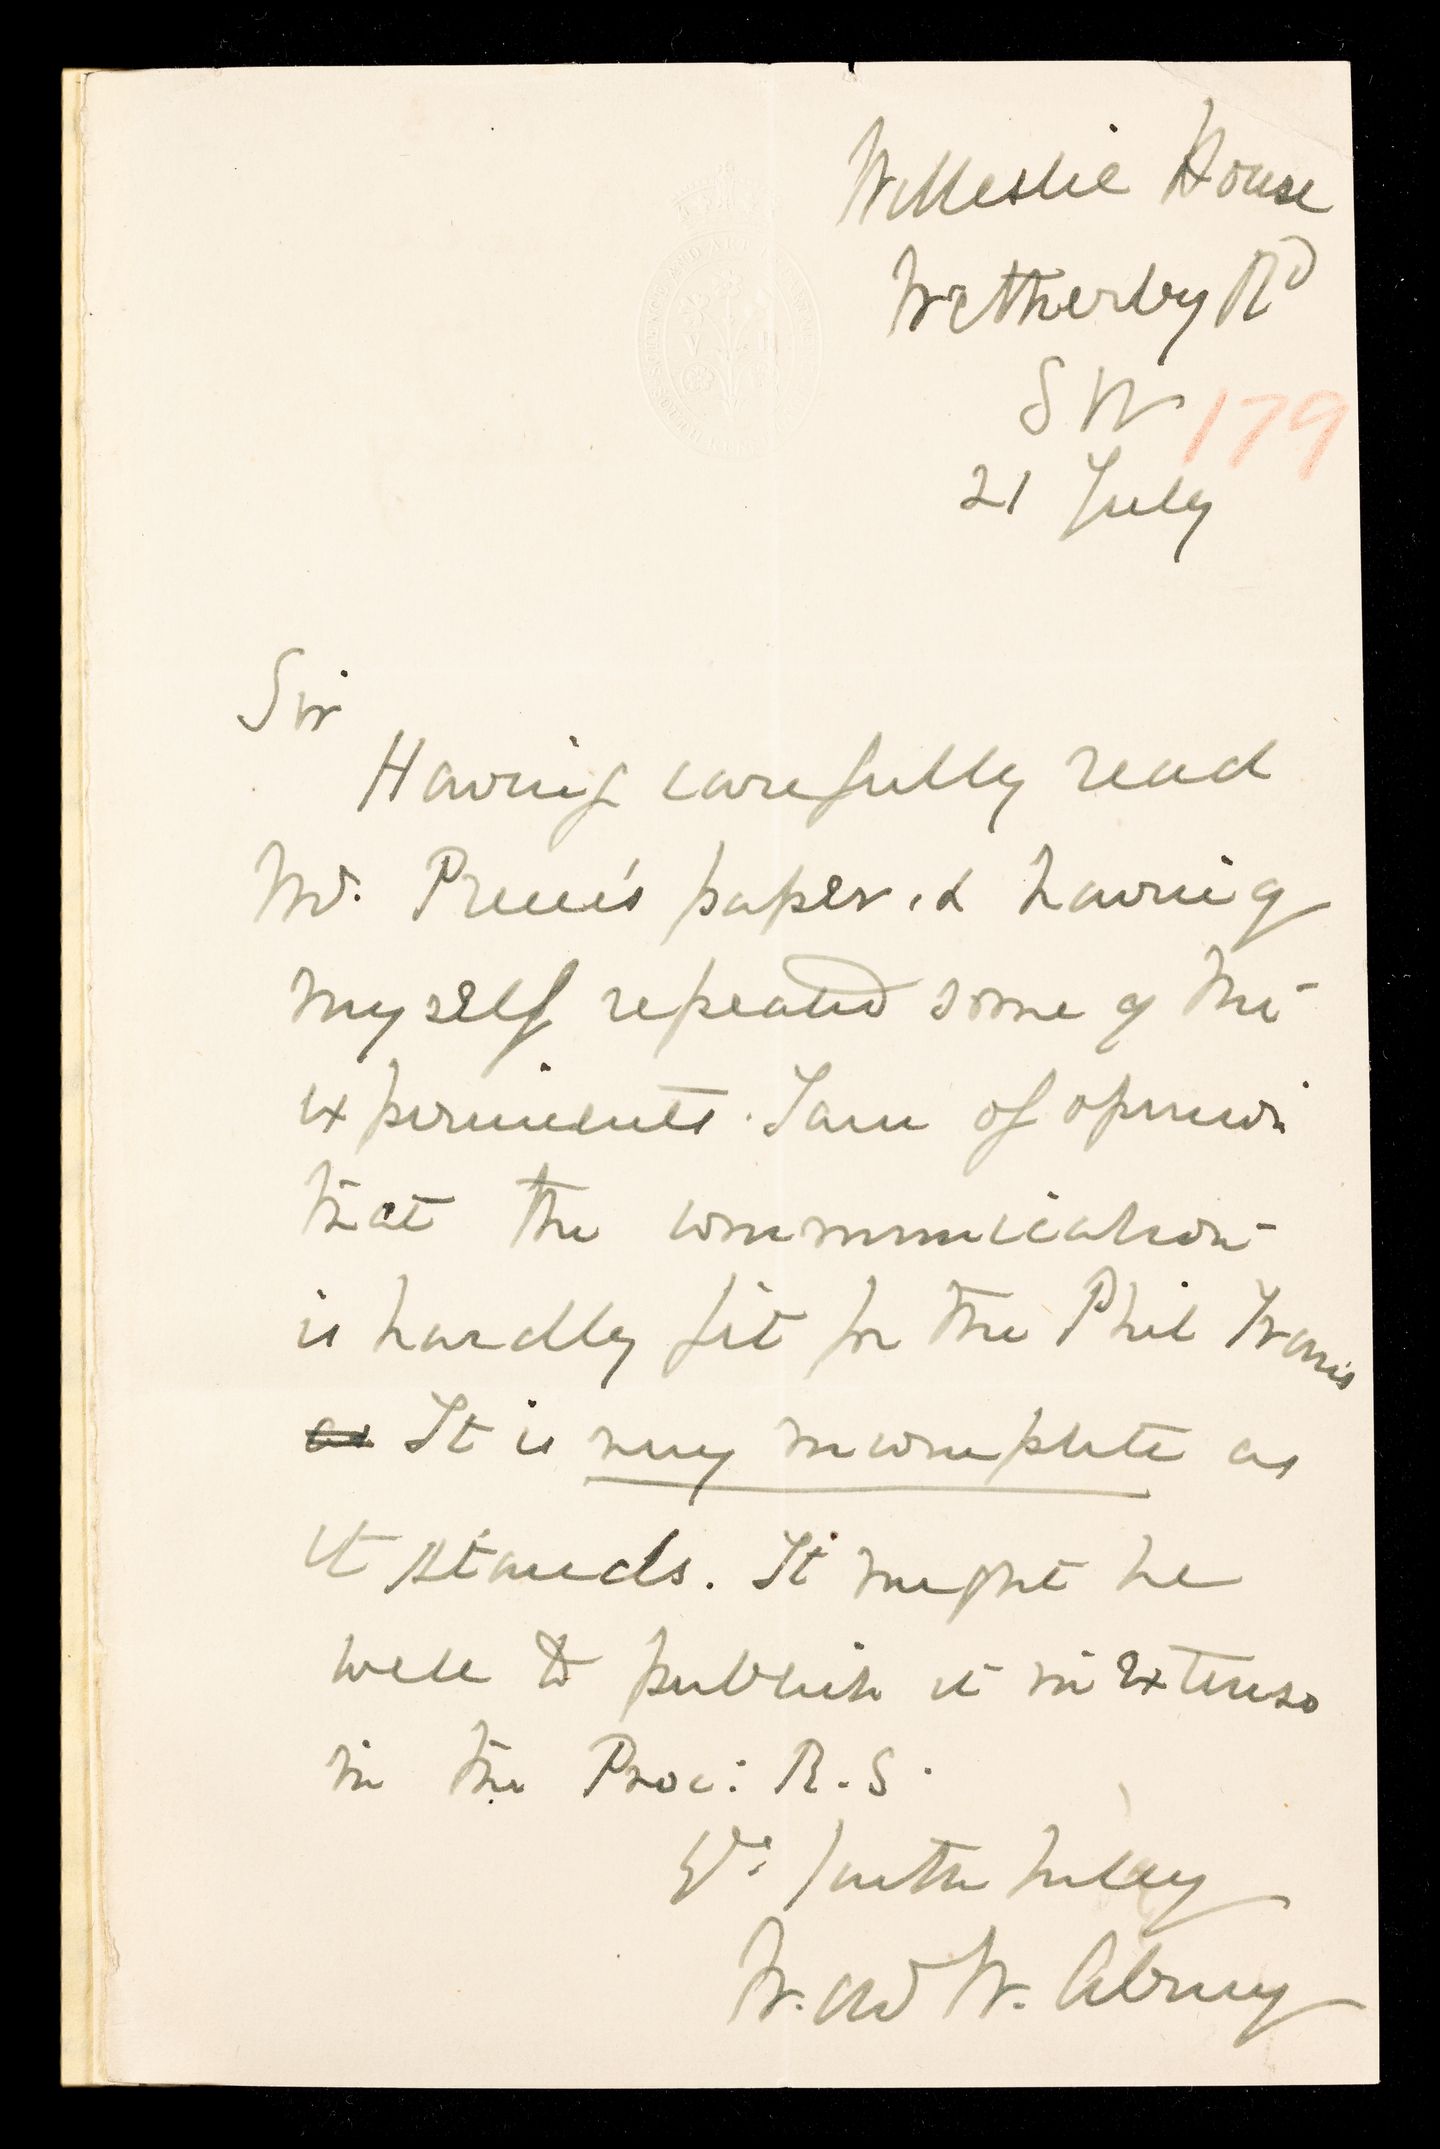 Willeslie House
Wetherby Rd
S W
179
21 July
SCIENCE AND ART
V R
Sir
Having carefully read
Mr. paper, & having
myself repeated some of the
experiments. I am of opinion
that the communication
is hardly fit for the Phil Trans
as It is very incomplete as
it stands. It might be
well to publish it in extenso
in the Proc: R. S.
Yrs: faithfully
W. de W. Abney